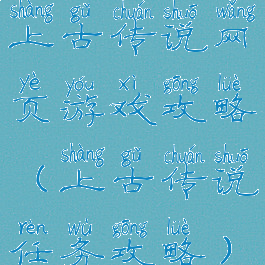 shàng gǔ chuán shuō wǎng
上古传说网
yè yóu xì gōng lüè
页游戏攻略
shàng gǔ chuán shuō
（上古传说
rèn wù gōng lüè
任务攻略）